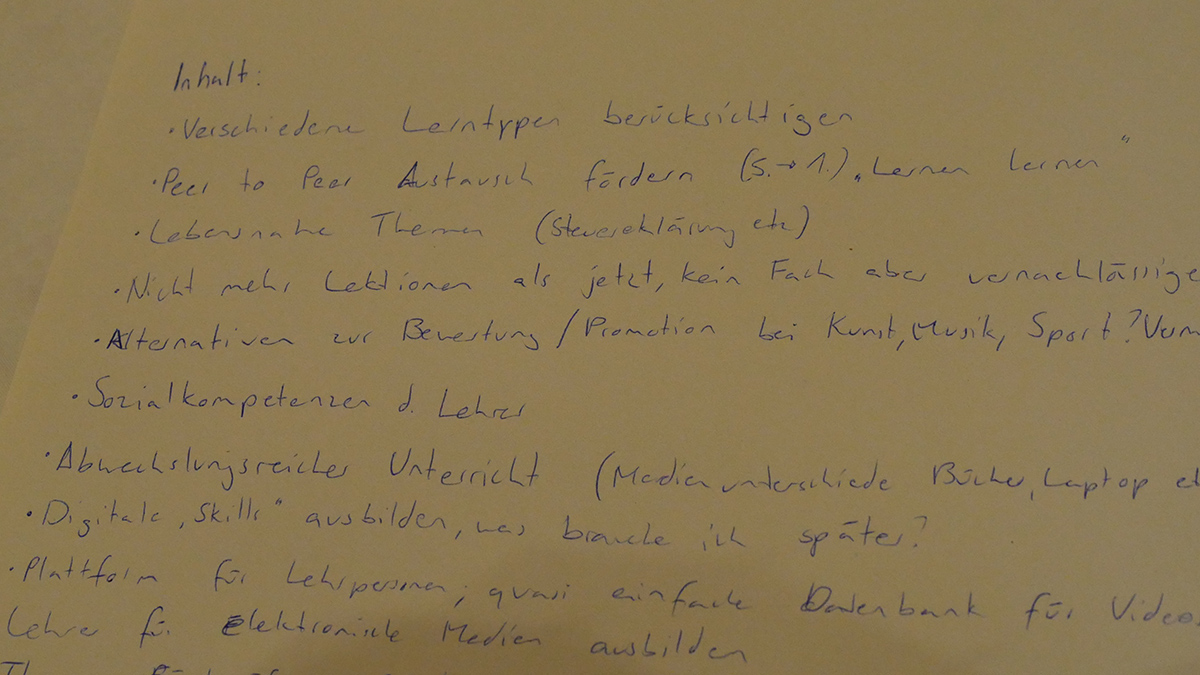 Inhalt:
• Verschiedene Lerntypen berücksichtigen
• Peer to Peer Austausch fördern (5. → 1.) „Lernen lernen"
• Lebensnahe Themen (Steuererklärung etc)
• Nicht mehr Lektionen als jetzt, kein Fach aber vernachlässige
• Alternativen zur Bewertung / Promotion bei Kunst, Musik, Sport? Verm
• Sozialkompetenzen d. Lehrer
• Abwechslungsreicher Unterricht (Medienunterschiede Bücher, Laptop et
• Digitale „Skills" ausbilden, was brauche ich später?
• Plattform für Lehrpersonen, quasi einfache Datenbank für Videos
Lehrer für elektronische Medien ausbilden